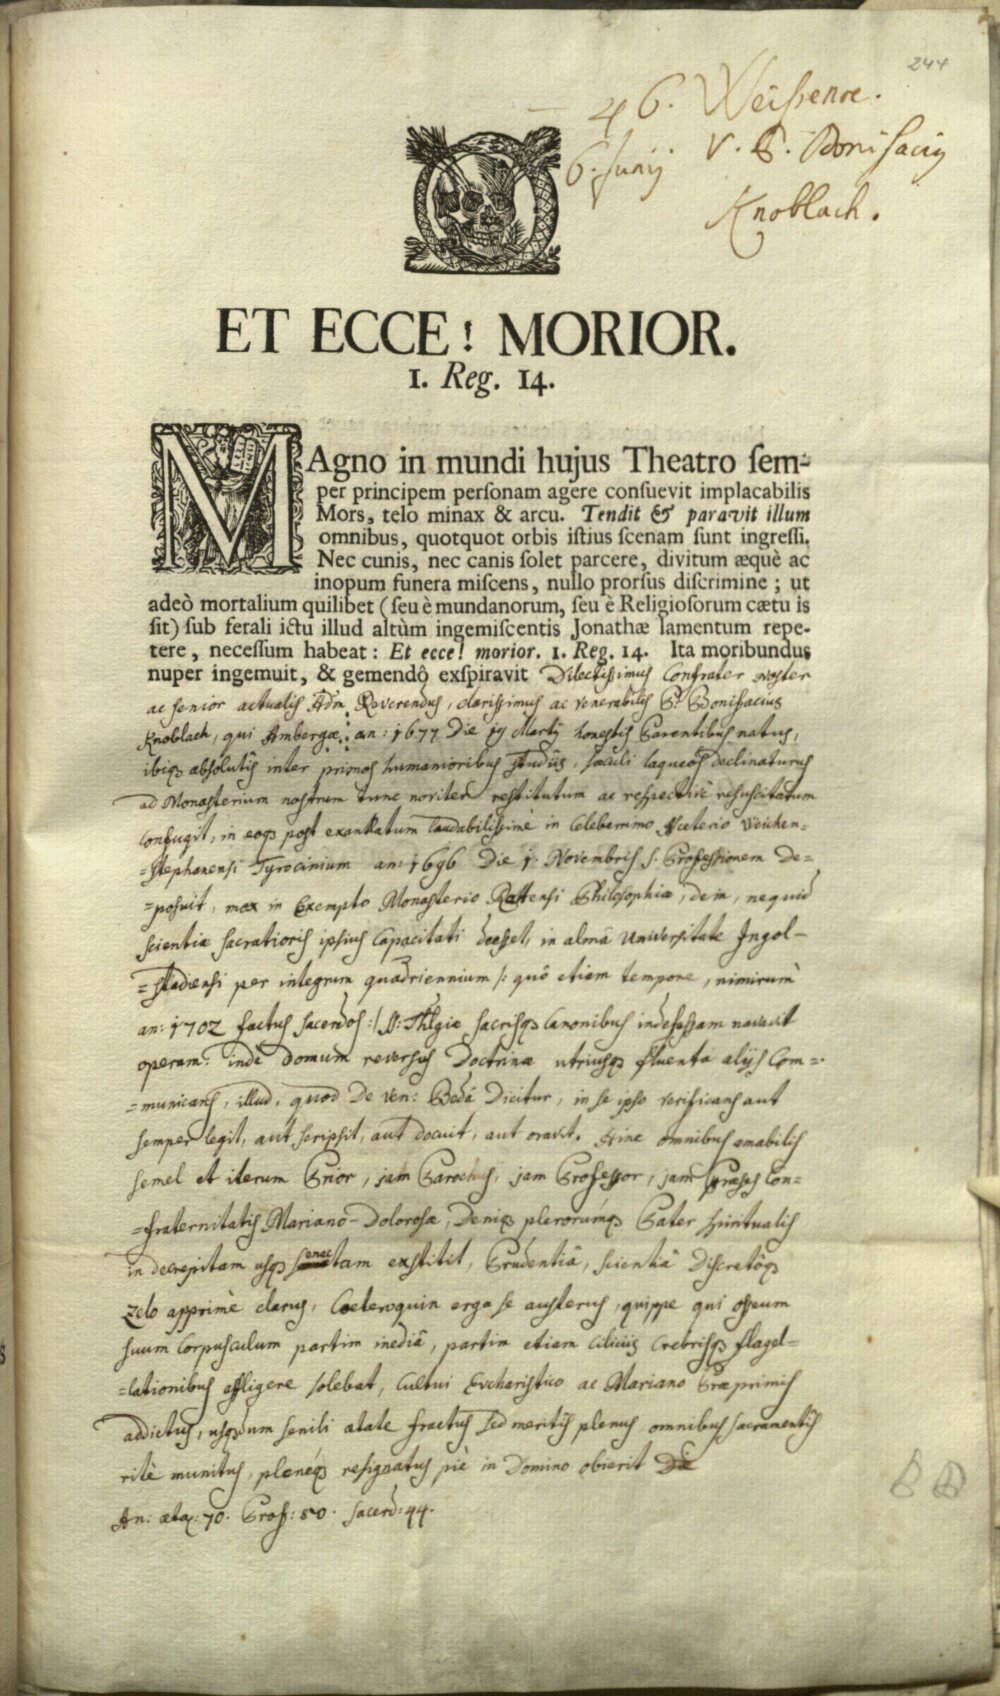 244
46. Weissenoe.
6. Junij V. P. Bonifaciq
Knoblach.
ET ECCE! MORIOR.
1. Reg. 14.
MAgno in mundi hujus Theatro ſem-
per principem perſonam agere conſuevit implacabilis
Mors, telo minax & arcu. Tendit & paravit illum
omnibus, quotquot orbis iſtius ſcenam ſunt ingreſſi.
Nec cunis, nec canis ſolet parcere, divitum æquè ac
inopum funera miſcens, nullo prorſus diſcrimine; ut
adeò mortalium quilibet (ſeu è mundanorum, ſeu è Religioſorum cætu is
ſit) ſub ferali ictu illud altùm ingemiſcentis Jonathæ lamentum repe-
tere, neceſſum habeat: Et ecce! morior. 1. Reg. 14. Ita moribundus
nuper ingemuit, & gemendô exſpiravit Dilectissimus Confrater noster
ac senior actualis Adm: Reverendus, clarissimus ac venerabilis P. Bonifacius
Knoblach, qui Ambergæ an: 1677 Die 19 Martij honestis Parentibus natus,
ibiq absolutis inter primos humanioribus studiis, sæculi laqueos declinaturus
ad Monasterium nostrum tunc noviter restitutum ac respectivè resuscitatum
confugit, in eoq post exantlatum laudabilissimè in Celeberrimo Asceterio Weichen=
=stephanensi Tyrocinium an: 1696 Die 1. Novembris S. Professionem De=
=posuit, mox in Exempto Monasterio Rottensi Philosophiæ, dein, nequid
scientiæ sacratioris ipsius Capacitati deesset, in almâ Universitate Ingol-
=stadiensi per integrum quadriennium /: quô etiam tempore, nimirum
an: 1702 factus sacerdos :/ SS: Thlgiæ sacrisq Canonibus indefessam navavit
operam: indè domum reversus Doctrinæ utriusq fluenta alijs Com=
=municans, illud, quod De Ven: Bedâ Dicitur, in se ipso verificans aut
semper legit, aut scripsit, aut docuit, aut oravit. Hinc omnibus amabilis
semel et iterum Prior, jam Parochus, jam Professor, jam Præses Con=
=fraternitatis Mariano-Dolorosæ, Deniq plerorumq Pater spiritualis
in decrepitam usq senectam exstitit, Prudentiâ, scientiâ Discretôq
zelo apprimè clarus, Cæteroquin erga se austerus, quippe qui osseum
suum Corpusculum partim inediâ, partim etiam ciliciis Crebrisq flagel=
=lationibus affligere solebat, Cultui Eucharistico ac Mariano Præprimis
addictus, usqdum senili ætate fractus sed meritis plenus omnibus sacramentis
ritè munitus, plenéq resignatus piè in Domino obierit
An: ætat: 70. Prof: 50. sacerd: 44.